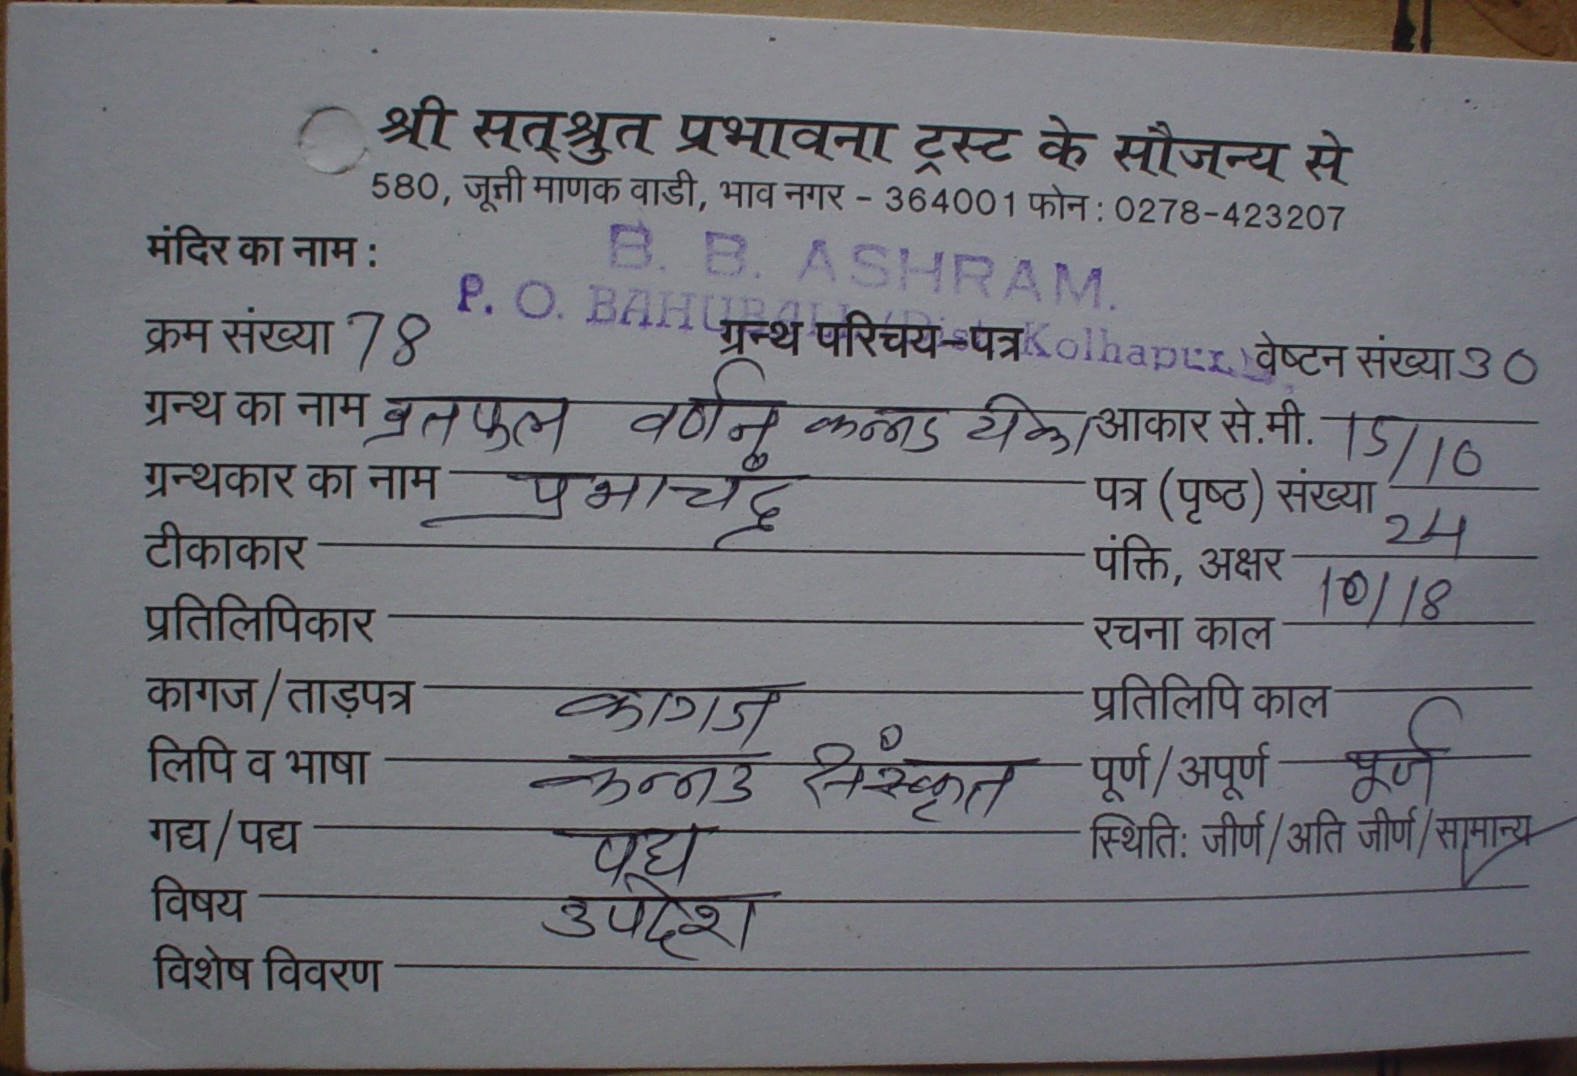 श्री सत्श्रुत प्रभावना ट्रस्ट के सौजन्य से
580, जूनी माणक वाडी, भाव नगर - 364001 फोन : 0278-423207
मंदिर का नाम : B. B. ASHRAM.
P. O. BAHUBALI (Dist. Kolhapur)
क्रम संख्या 78 ग्रन्थ परिचय-पत्र वेष्टन संख्या 30
ग्रन्थ का नाम व्रतफल वर्णन कन्नड टीका आकार से.मी. 15/10
ग्रन्थकार का नाम प्रभाचंद्र पत्र (पृष्ठ) संख्या 24
टीकाकार पंक्ति, अक्षर 10/18
प्रतिलिपिकार रचना काल
कागज/ताड़पत्र कागज प्रतिलिपि काल
लिपि व भाषा कन्नड संस्कृत पूर्ण/अपूर्ण पूर्ण
गद्य/पद्य पद्य स्थिति: जीर्ण/अति जीर्ण/सामान्य
विषय उपदेश
विशेष विवरण